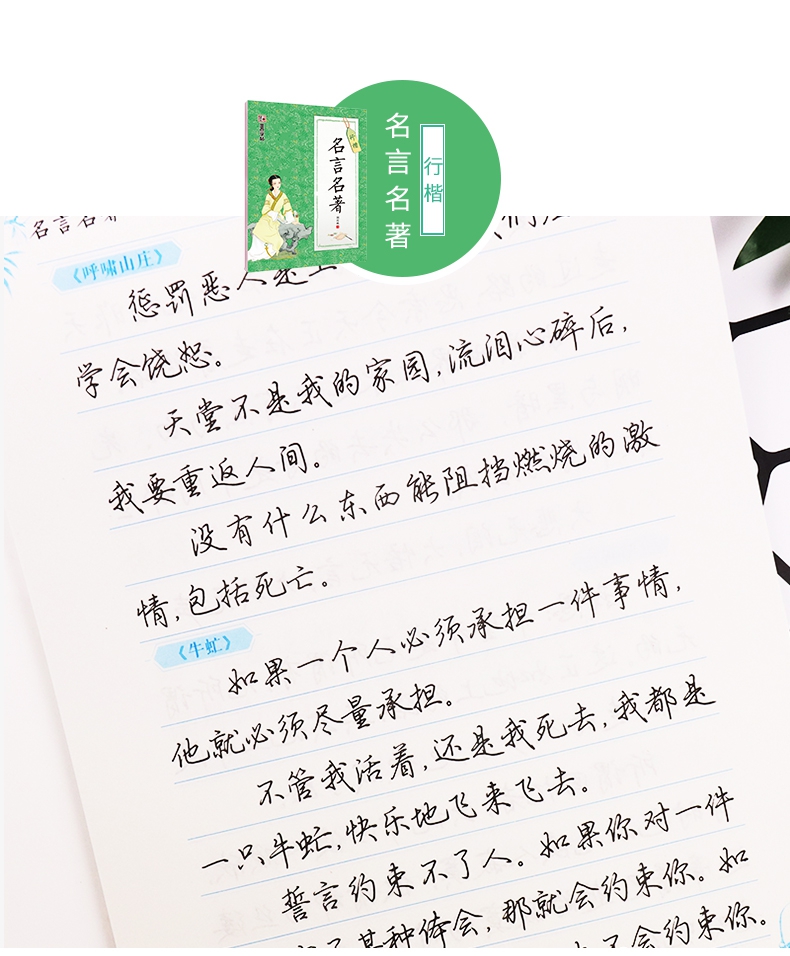 名言名著
行楷
名言名著
名言名
《呼啸山庄》
惩罚恶人是
学会饶恕。
天堂不是我的家园,流泪心碎后,
我要重返人间。
没有什么东西能阻挡燃烧的激
情,包括死亡。
《牛虻》
如果一个人必须承担一件事情,
他就必须尽量承担。
不管我活着,还是我死去,我都是
一只牛虻,快乐地飞来飞去。
誓言约束不了人。如果你对一件
某种体会,那就会约束你。如
会约束你。